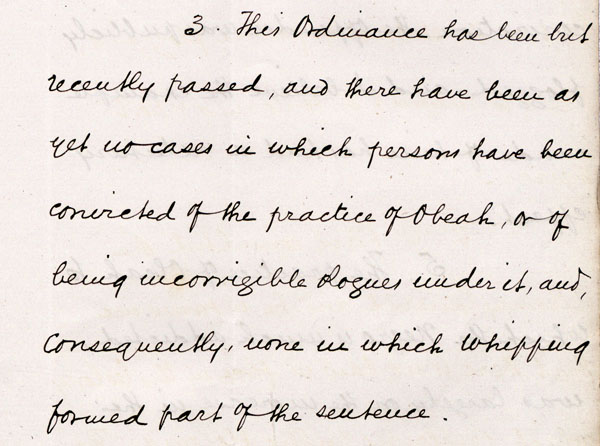 3. This Ordinance has been but
recently passed, and there have been as
yet no cases in which persons have been
convicted of the practice of Obeah, or of
being incorrigible Rogues under it, and,
consequently, none in which whipping
formed part of the sentence.